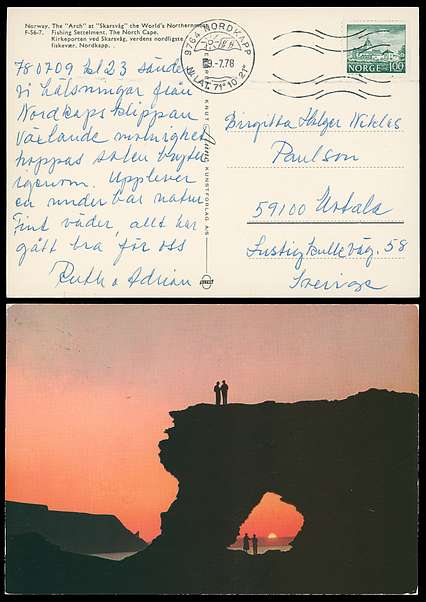 Norway. The "Arch" at "Skarsvåg" the World's Northernmost
F-56-7. Fishing Settelment. The North Cape.
Kirkeporten ved Skarsvåg, verdens nordligste
fiskevær. Nordkapp.
9764 NORDKAPP
9.-7.78
N.LAT. 71° 10' 21"
NORGE 100
780709 kl 23 sänder
vi hälsningar från
Nordkapsklippan
Växlande molnighet
hoppas solen bryter
igenom. Upplever
en underbar natur
Fint väder, allt har
gått bra för oss
Ruth o Adrian
KUNSTFORLAG AS
Birgitta Holger
Paulson
59100
58
Sverige